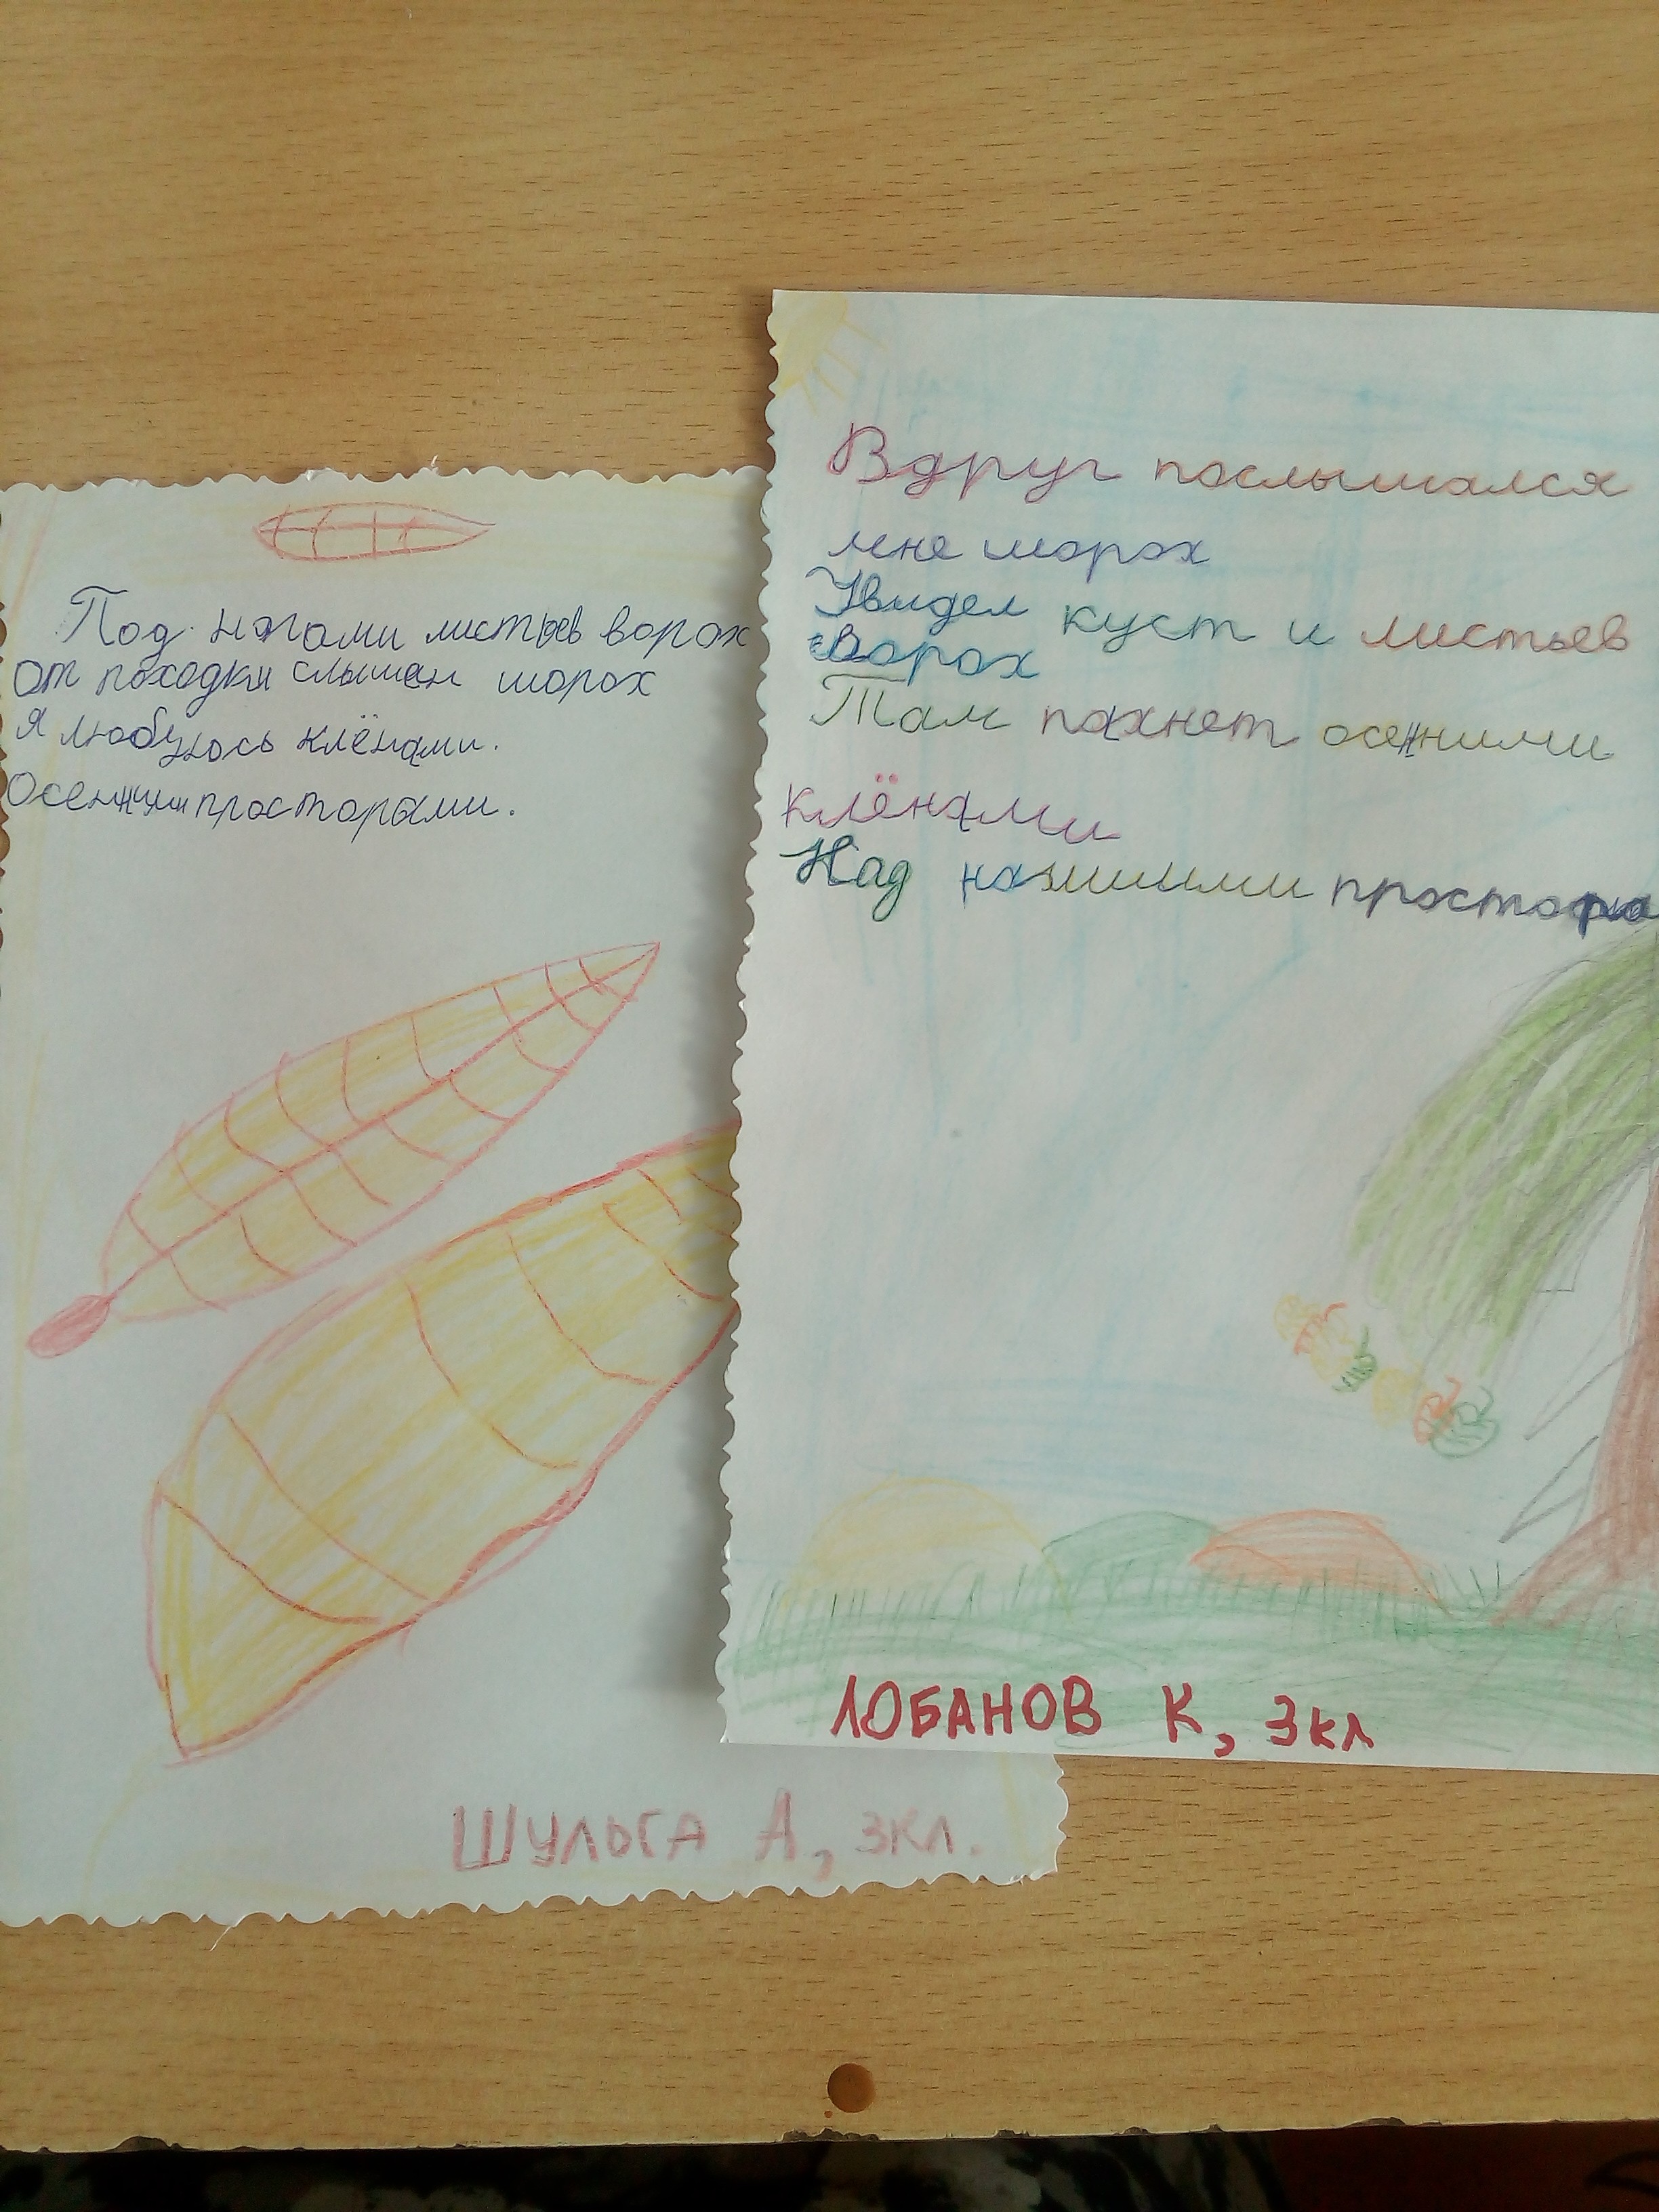 Под ногами листьев ворох
От походки слышен шорох
Я любуюсь клёнами.
Осенними просторами.
Шульга А, 3кл.
Вдруг послышался
мне шорох
Увидел куст и листьев
ворох
Там пахнет осенними
клёнами
Над нашими
ЛОБАНОВ К, 3кл